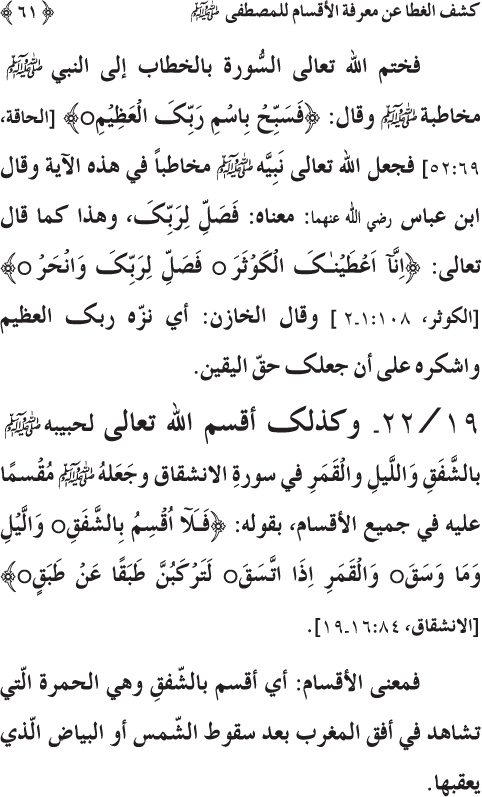 كشف الغطا عن معرفة الأقسام للمصطفى ﷺ ﴿ ٦١ ﴾
فختم الله تعالى السُّورة بالخطاب إلى النبي ﷺ
مخاطبة ﷺ وقال: ﴿فَسَبِّحْ بِاسْمِ رَبِّكَ الْعَظِيْمِo﴾ [الحاقة،
٥٢:٦٩] فجعل الله تعالى نَبِيَّه ﷺ مخاطباً في هذه الآية وقال
ابن عباس رضي الله عنهما: معناه: فَصَلِّ لِرَبِّكَ، وهذا كما قال
تعالى: ﴿اِنَّآ اَعْطَيْنٰـكَ الْكَوْثَرَo فَصَلِّ لِرَبِّكَ وَانْحَرْo﴾
[الكوثر، ١:١٠٨ـ٢ ] وقال الخازن: أي نزّه ربك العظيم
واشكره على أن جعلك حقّ اليقين.
٢٢/١٩ـ وكذلك أقسم الله تعالى لحبيبه ﷺ
بالشَّفَقِ وَاللَّيلِ والْقَمَرِ في سورةِ الانشقاق وجَعَلهُ ﷺ مُقْسمًا
عليه في جميع الأقسام، بقوله: ﴿فَـلَآ اُقْسِمُ بِالشَّفَقِo وَالَّيْلِ
وَمَا وَسَقَo وَالْقَمَرِ اِذَا اتَّسَقَo لَتَرْكَبُنَّ طَبَقًا عَنْ طَبَقٍo﴾
[الانشقاق، ١٦:٨٤ـ١٩].
فمعنى الأقسام: أي أقسم بالشّفقِ وهي الحمرة الّتي
تشاهد في أفق المغرب بعد سقوط الشّمس أو البياض الّذي
يعقبها.